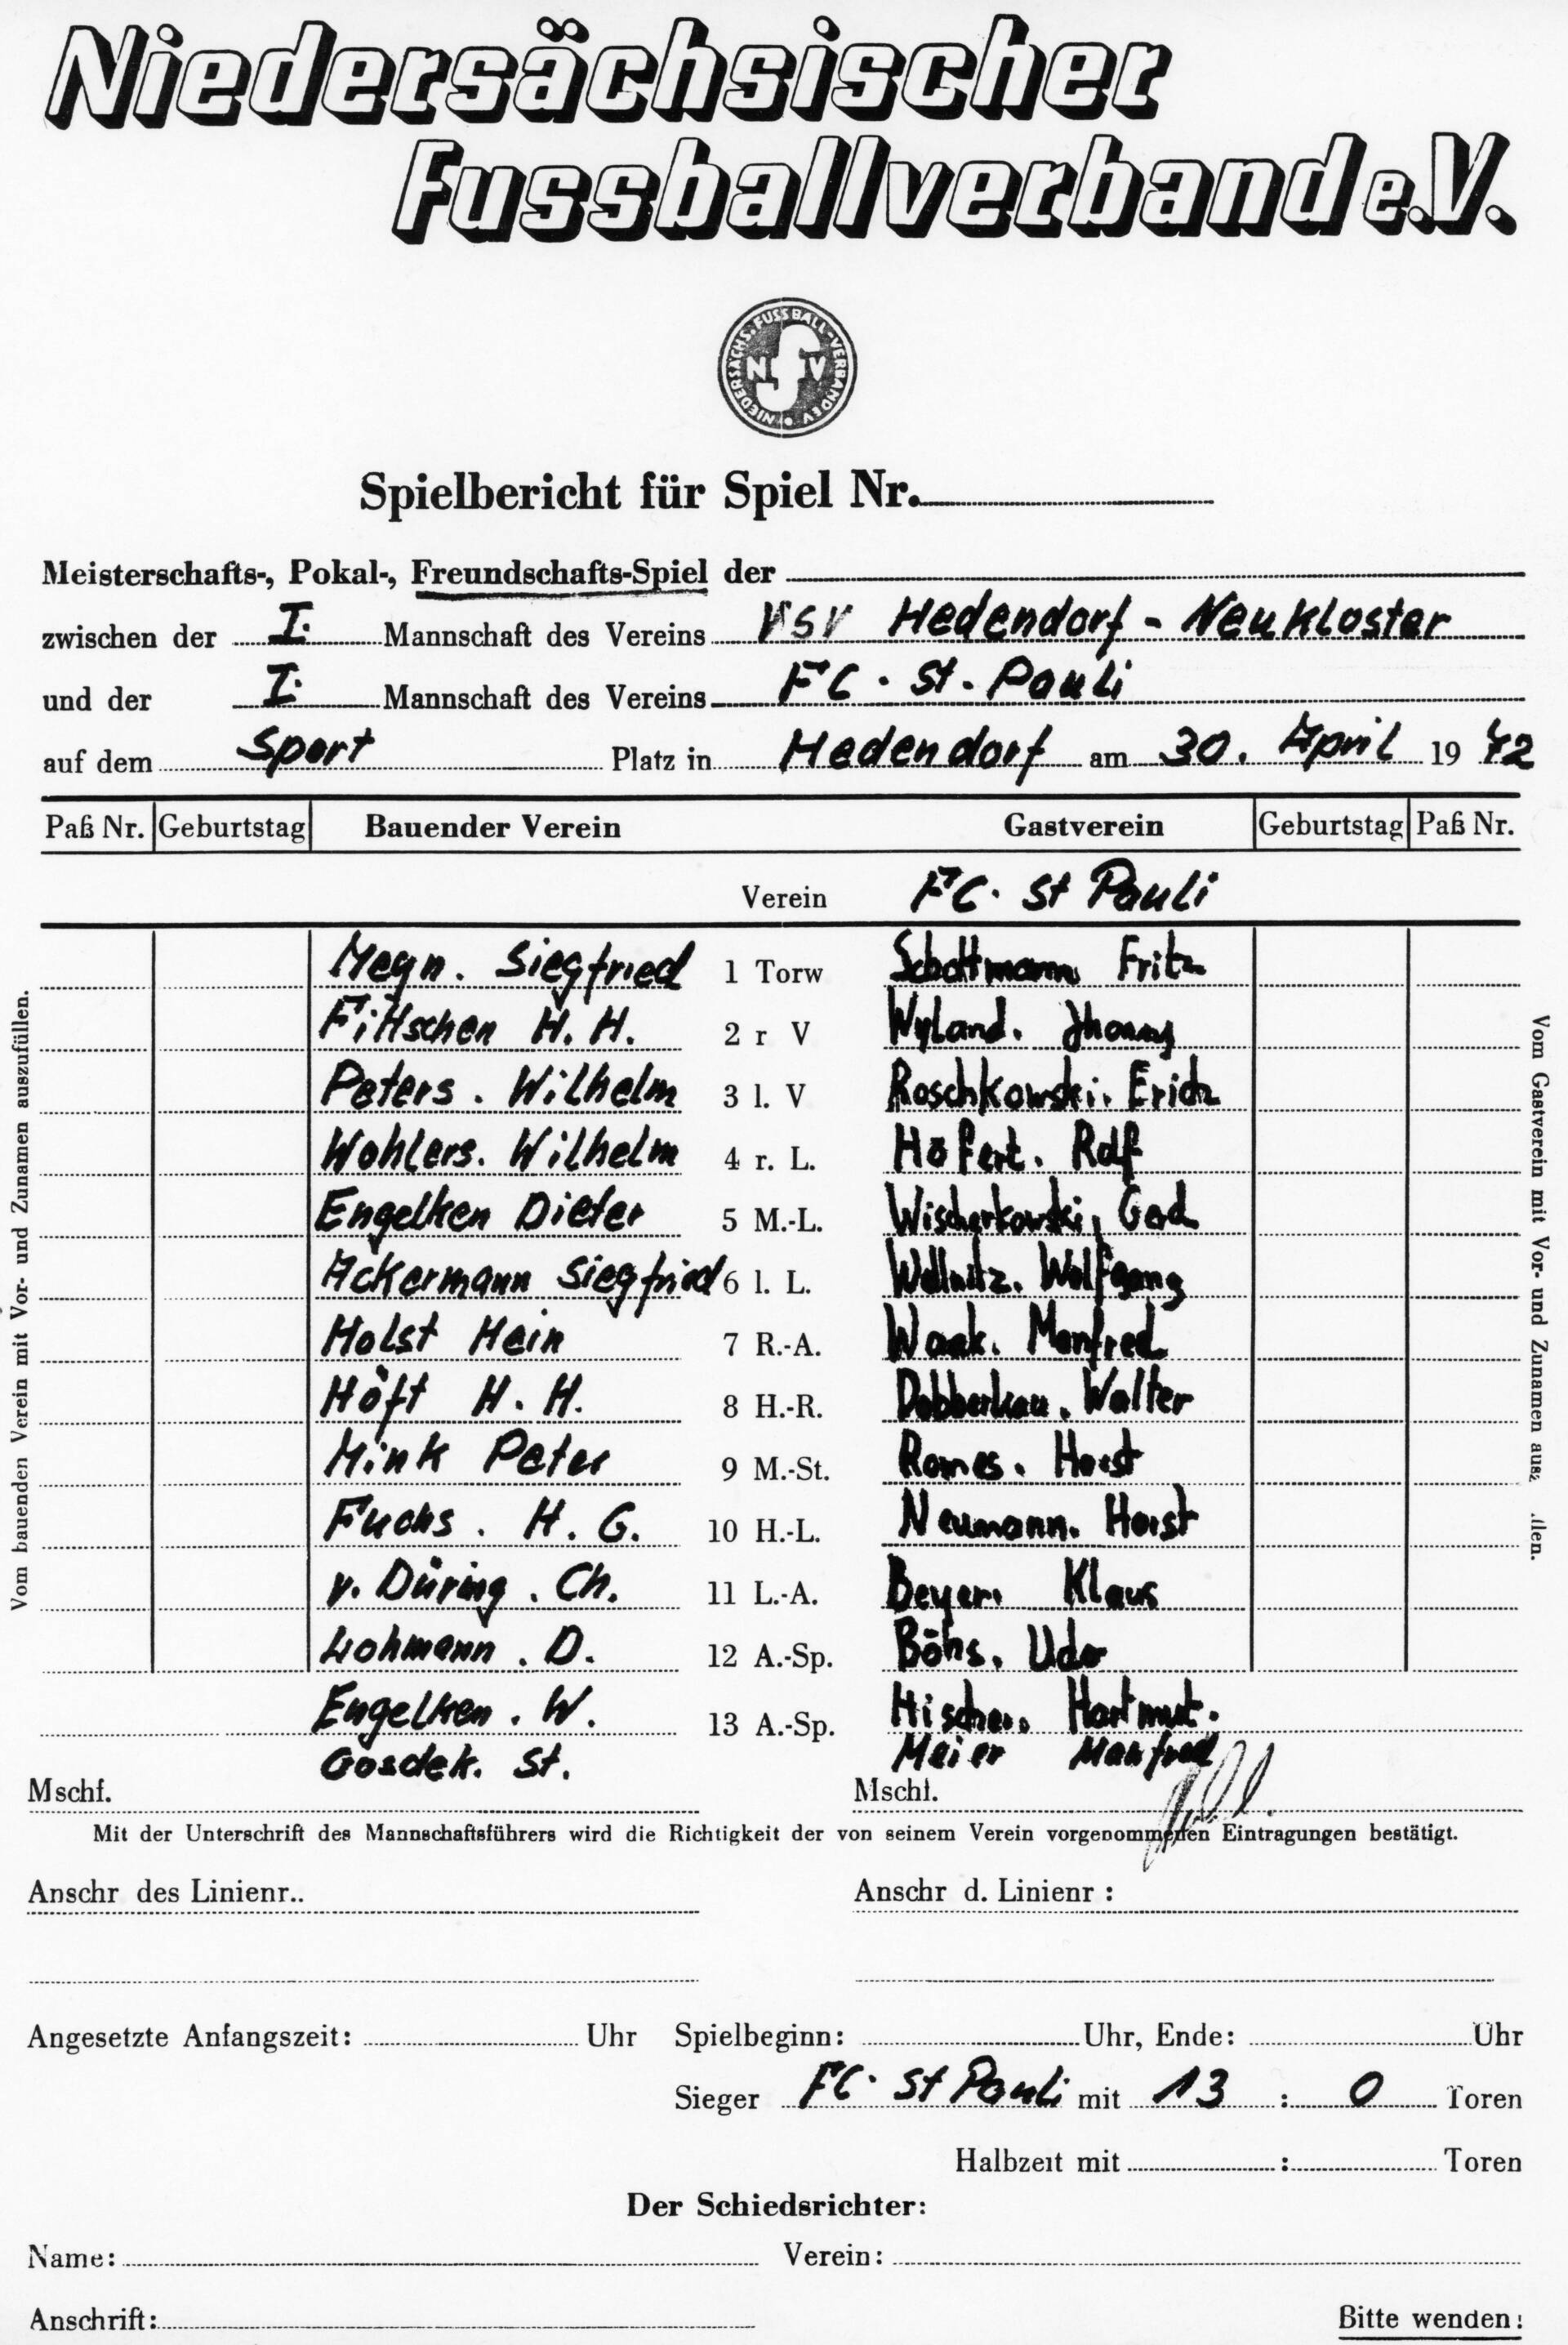 Niedersächsischer
Fussballverband e.V.
NIEDERSÄCHS. FUSSBALL-VERBAND E.V.
N f V
Spielbericht für Spiel Nr.
Meisterschafts-, Pokal-, Freundschafts-Spiel der
zwischen der I. Mannschaft des Vereins VSV Hedendorf - Neukloster
und der I. Mannschaft des Vereins FC. St. Pauli
auf dem Sport Platz in Hedendorf am 30. April 19 72
Paß Nr. Geburtstag Bauender Verein Gastverein Geburtstag Paß Nr.
Verein FC. St Pauli
Vom bauenden Verein mit Vor- und Zunamen auszufüllen.
Meyn. Siegfried 1 Torw Schottmann Fritz
Fittschen H. H. 2 r V Wyland. Jhonny
Peters. Wilhelm 3 l. V Roschkowski. Erich
Wohlers. Wilhelm 4 r. L. Höfert. Rolf
Engelken Dieter 5 M.-L. Gerd
Ackermann Siegfried 6 l. L. Wellnitz. Wolfgang
Holst Hein 7 R.-A. Waak. Manfred
Höft H. H. 8 H.-R. Dobberkau. Walter
Mink Peter 9 M.-St. Romes. Horst
Fuchs. H. G. 10 H.-L. Neumann. Horst
v. Düring. Ch. 11 L.-A. Beyer. Klaus
Lohmann. D. 12 A.-Sp. Böhs. Udo
Engelken. W. 13 A.-Sp. Hischer. Hartmut.
Gosdek. St. Meier Manfred
Vom Gastverein mit Vor- und Zunamen ausz llen.
Mschf. Mschf.
Mit der Unterschrift des Mannschaftsführers wird die Richtigkeit der von seinem Verein vorgenommenen Eintragungen bestätigt.
Anschr des Linienr.. Anschr d. Linienr :
Angesetzte Anfangszeit: Uhr Spielbeginn: Uhr, Ende: Uhr
Sieger FC. St Pauli mit 13 : 0 Toren
Halbzeit mit : Toren
Der Schiedsrichter:
Name: Verein:
Anschrift: Bitte wenden: